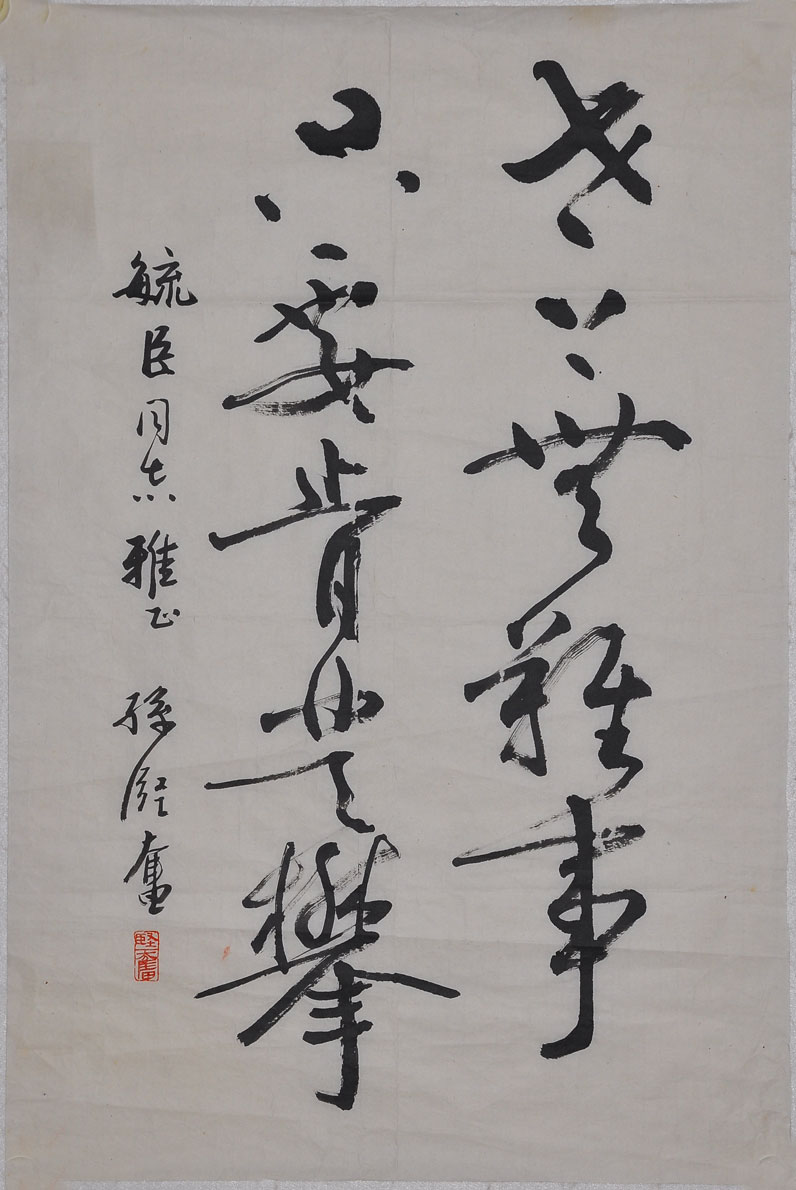 世上無難事
只要肯登攀
毓臣同志雅正 孫堅奮
堅奮